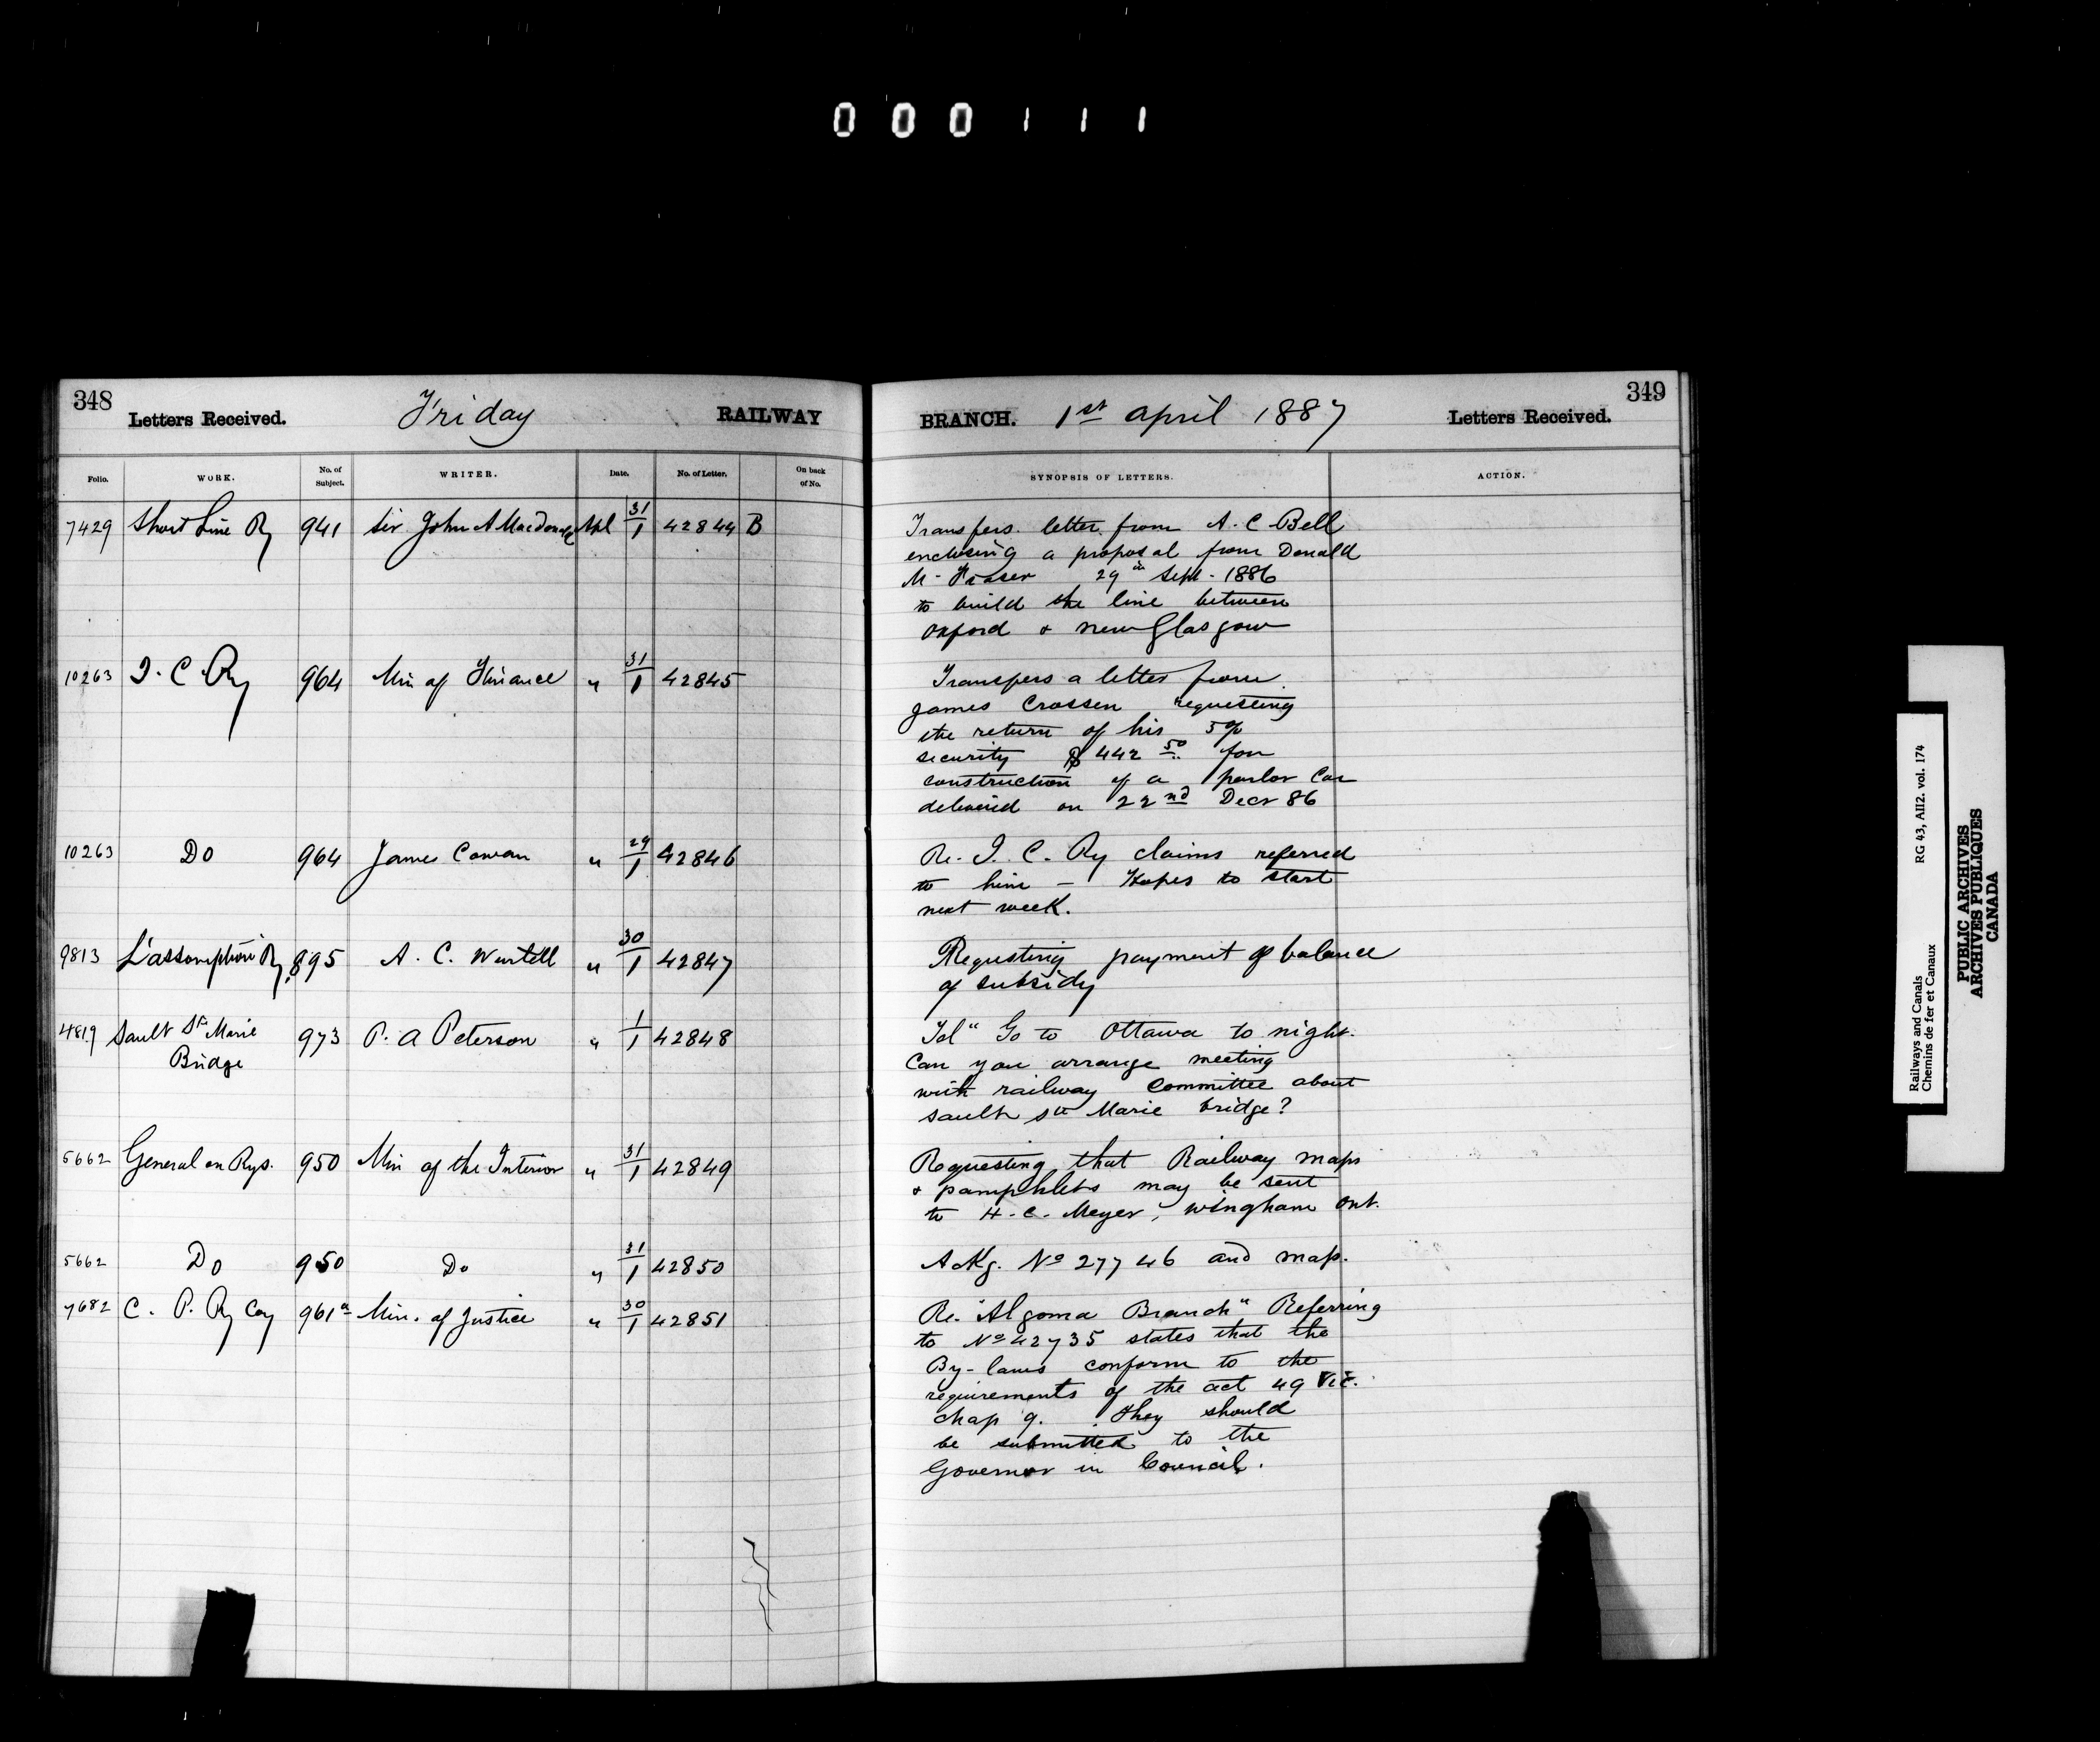 000111
348
Letters Received. Friday RAILWAY
Folio. WORK. No. of Subject. WRITER. Date. No. of Letter. On back of No.
7429 Short Line Ry 941 Sir John A Macdonald Apl 31/1 42844 B
10263 I. C. Ry 964 Min of Finance " 31/1 42845
10263 Do 964 James Cowan " 29/1 42846
9813 L'assomption Ry 895 A. C. Wurtell " 30/1 42847
4819 Sault Ste Marie 973 P. A Peterson " 1/1 42848
Bridge
5662 General on Rys. 950 Min of the Interior " 31/1 42849
5662 Do 950 Do " 31/1 42850
7682 C. P. Ry Coy 961a Min. of Justice " 30/1 42851
349
BRANCH. 1st April 1887 Letters Received.
SYNOPSIS OF LETTERS. ACTION.
Transfers letter from A. C Bell
enclosing a proposal from Donald
M. Fraser 29th Sept. 1886
to build the line between
Oxford & New Glasgow
Transfers a letter from
James Crossen requesting
the return of his 5%
security $442 50 for
construction of a parlor Car
delivered on 22nd Decr 86
Re. I. C. Ry claims referred
to him – Hopes to start
next week.
Requesting payment of balance
of subsidy
Tel " Go to Ottawa to night.
Can you arrange meeting
with railway Committee about
Sault Ste Marie bridge?
Requesting that Railway maps
& pamphlets may be sent
to H. C. Meyer, Wingham Ont.
Ackg. No 27746 and map.
Re. "Algoma Branch" Referring
to No 42735 states that the
By-laws conform to the
requirements of the act 49 Vic.
chap 9. they should
be submitted to the
Governor in Council.
Railways and Canals RG 43, AII2. vol. 174
Chemins de fer et Canaux
PUBLIC ARCHIVES
ARCHIVES PUBLIQUES
CANADA